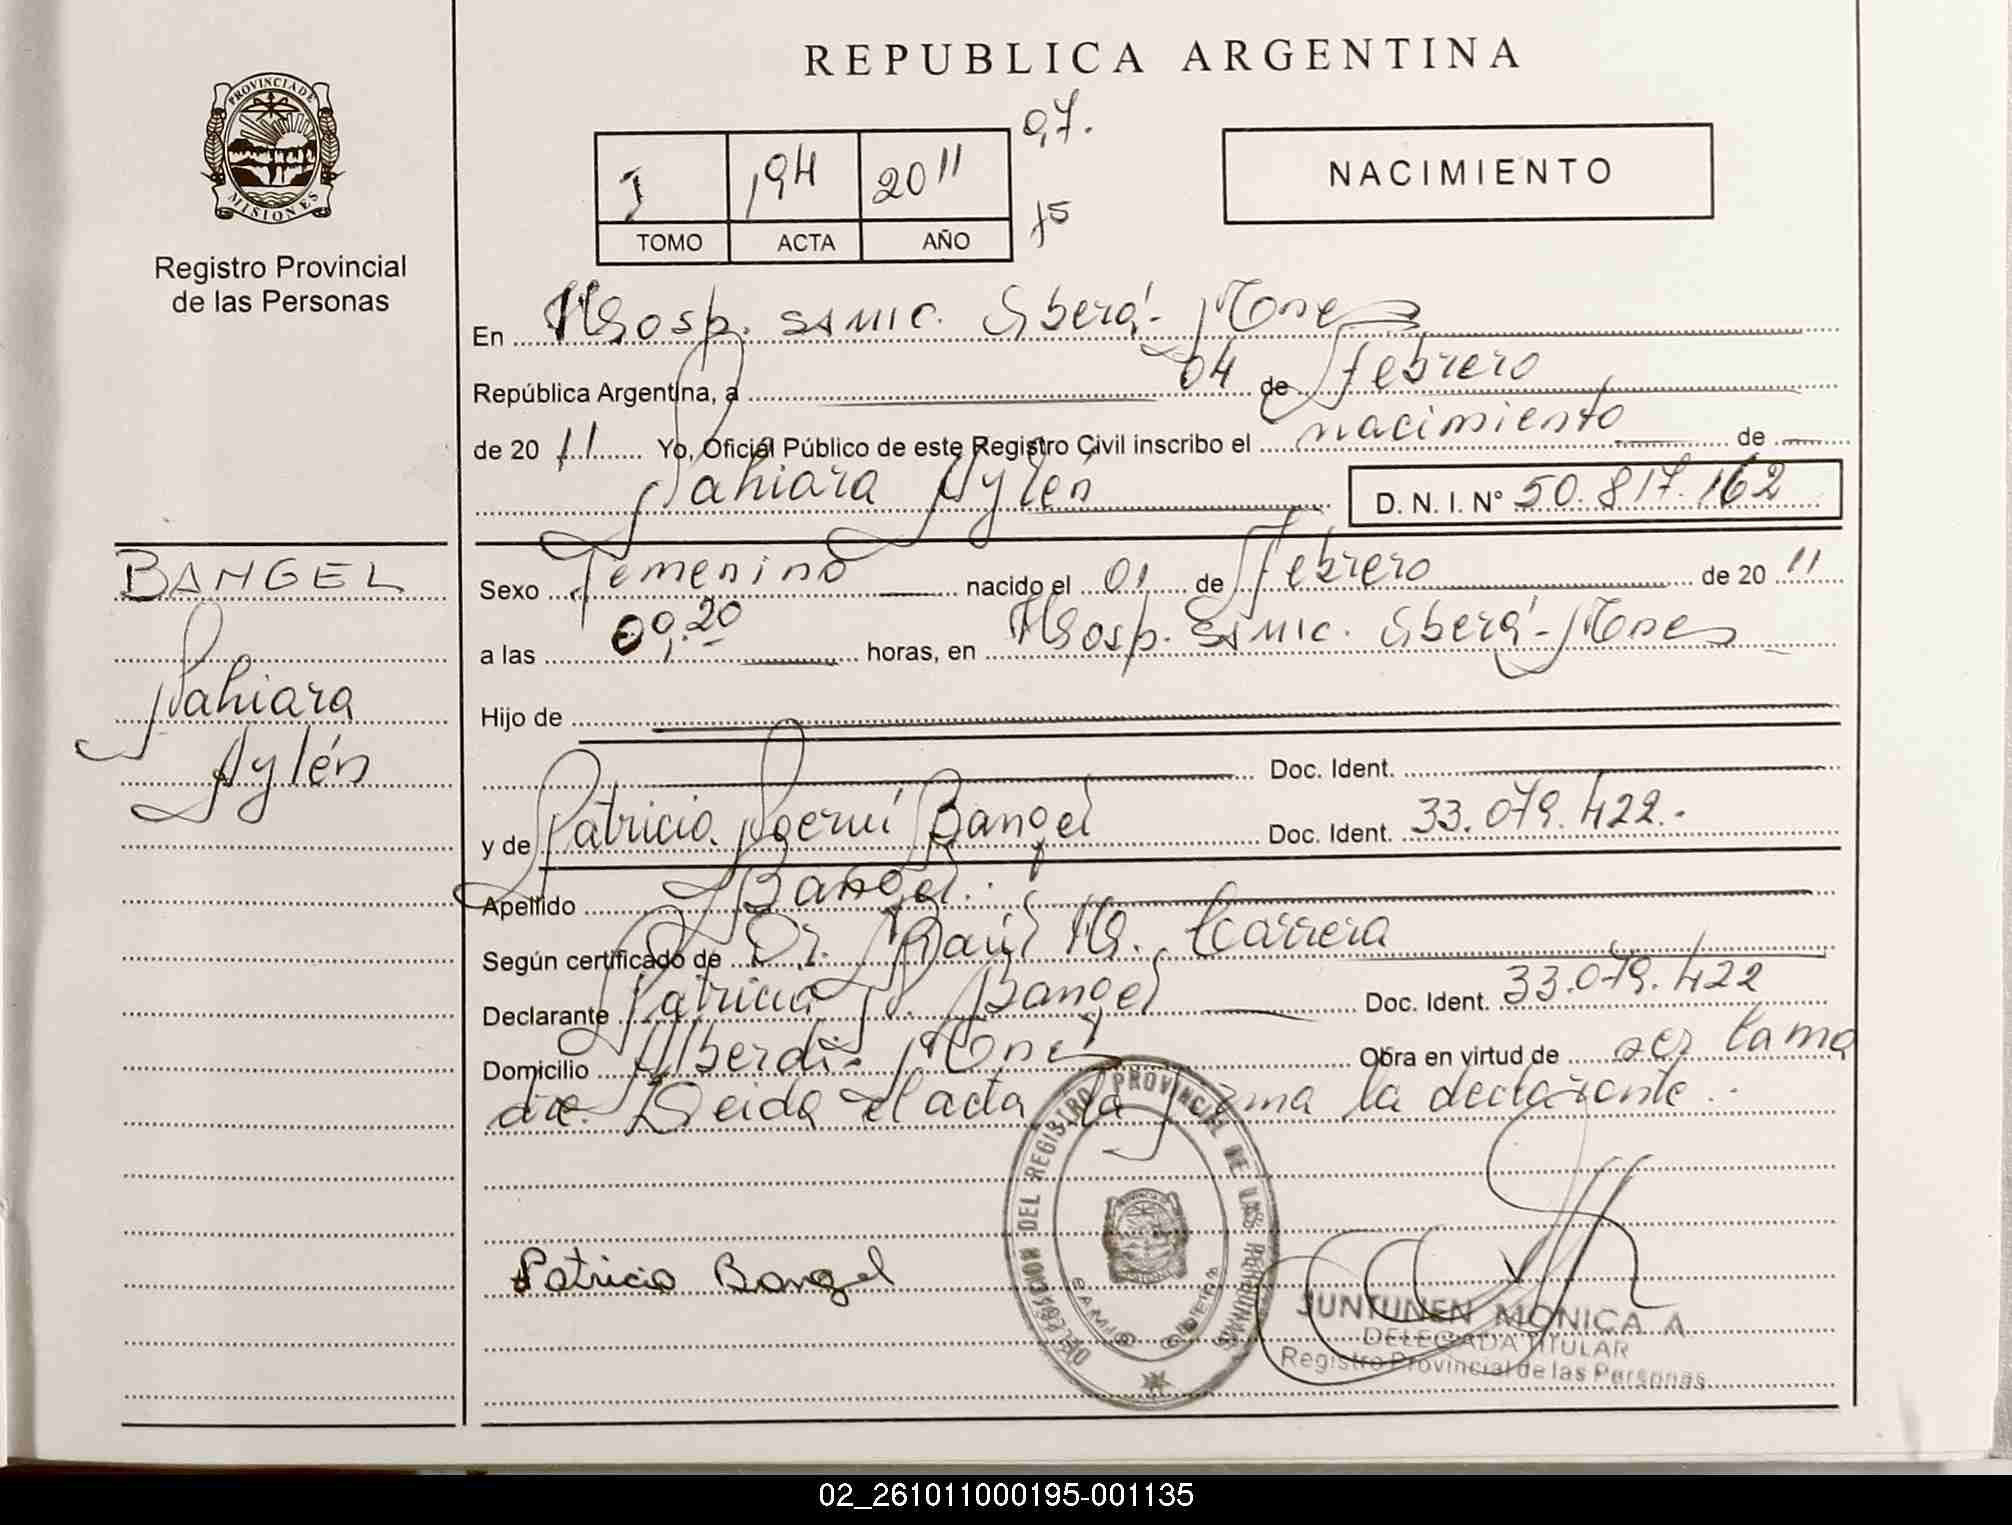 REPUBLICA ARGENTINA
PROVINCIA DE
MISIONES
Registro Provincial
de las Personas
I 194 2011
TOMO ACTA AÑO
07.
15
NACIMIENTO
En Hosp. SAMIC. Oberá - Mones
República Argentina, a 04 de Febrero
de 20 11 Yo, Oficial Público de este Registro Civil inscribo el nacimiento de
Sahiara Aylén D. N. I. Nº 50.817.162
BANGEL
Sahiara
Aylén
Sexo Femenino nacido el 01 de Febrero de 20 11
a las 09.20 horas, en Hosp. SAMIC. Oberá - Mones
Hijo de
Doc. Ident.
y de Patricia Noemí Bangel Doc. Ident. 33.079.422.-
Apellido Bangel.
Según certificado de Dr. Raúl H. Carrera
Declarante Patricia N. Bangel Doc. Ident. 33.079.422
Domicilio Alberdi - Mones Obra en virtud de ser la ma
dre. Leida el acta la firma la declarante.
DELEGACION DEL REGISTRO PROVINCIAL DE LAS PERSONAS
Patricia Bangel
JUNTUNEN MONICA A
DELEGADA TITULAR
Registro Provincial de las Personas
02_261011000195-001135